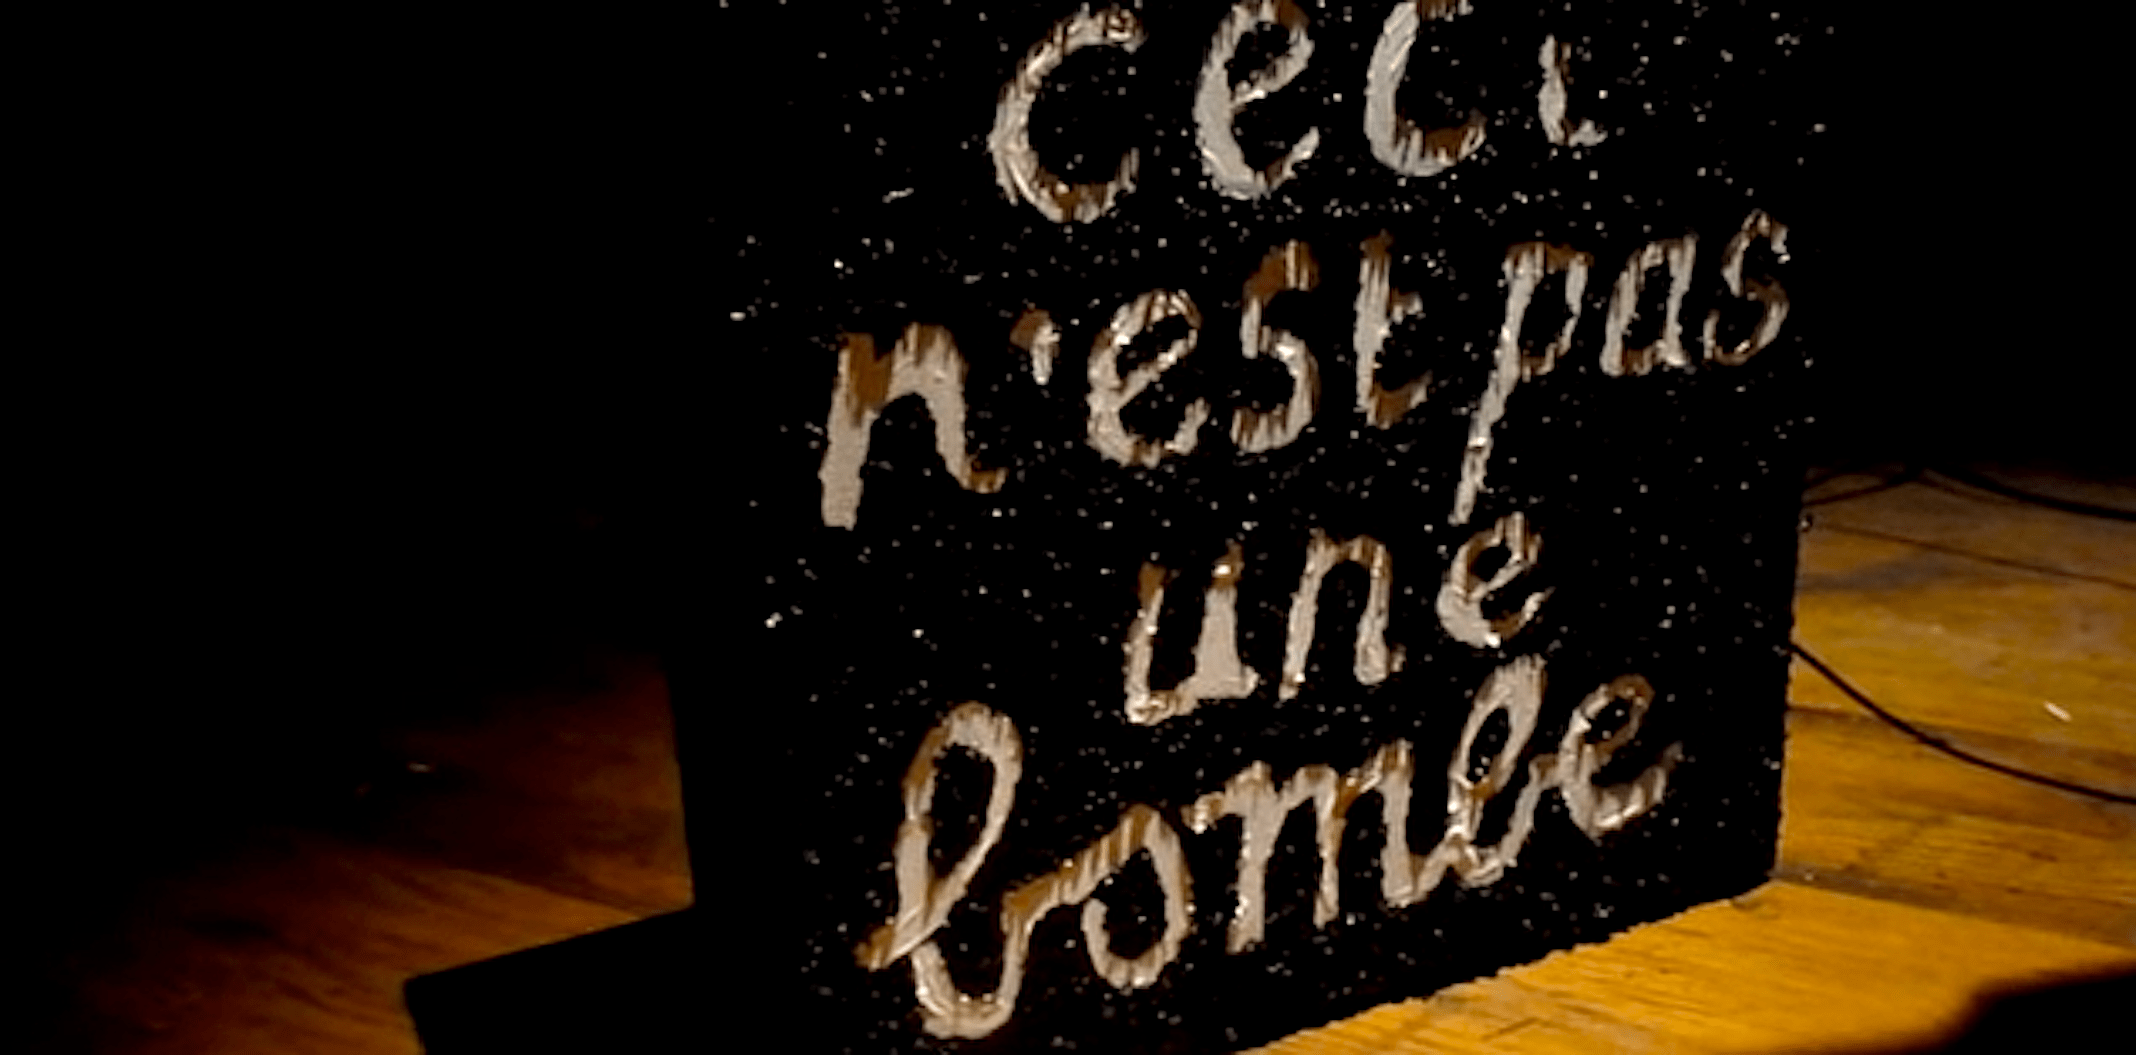 ceci
n'est pas
une
bombe